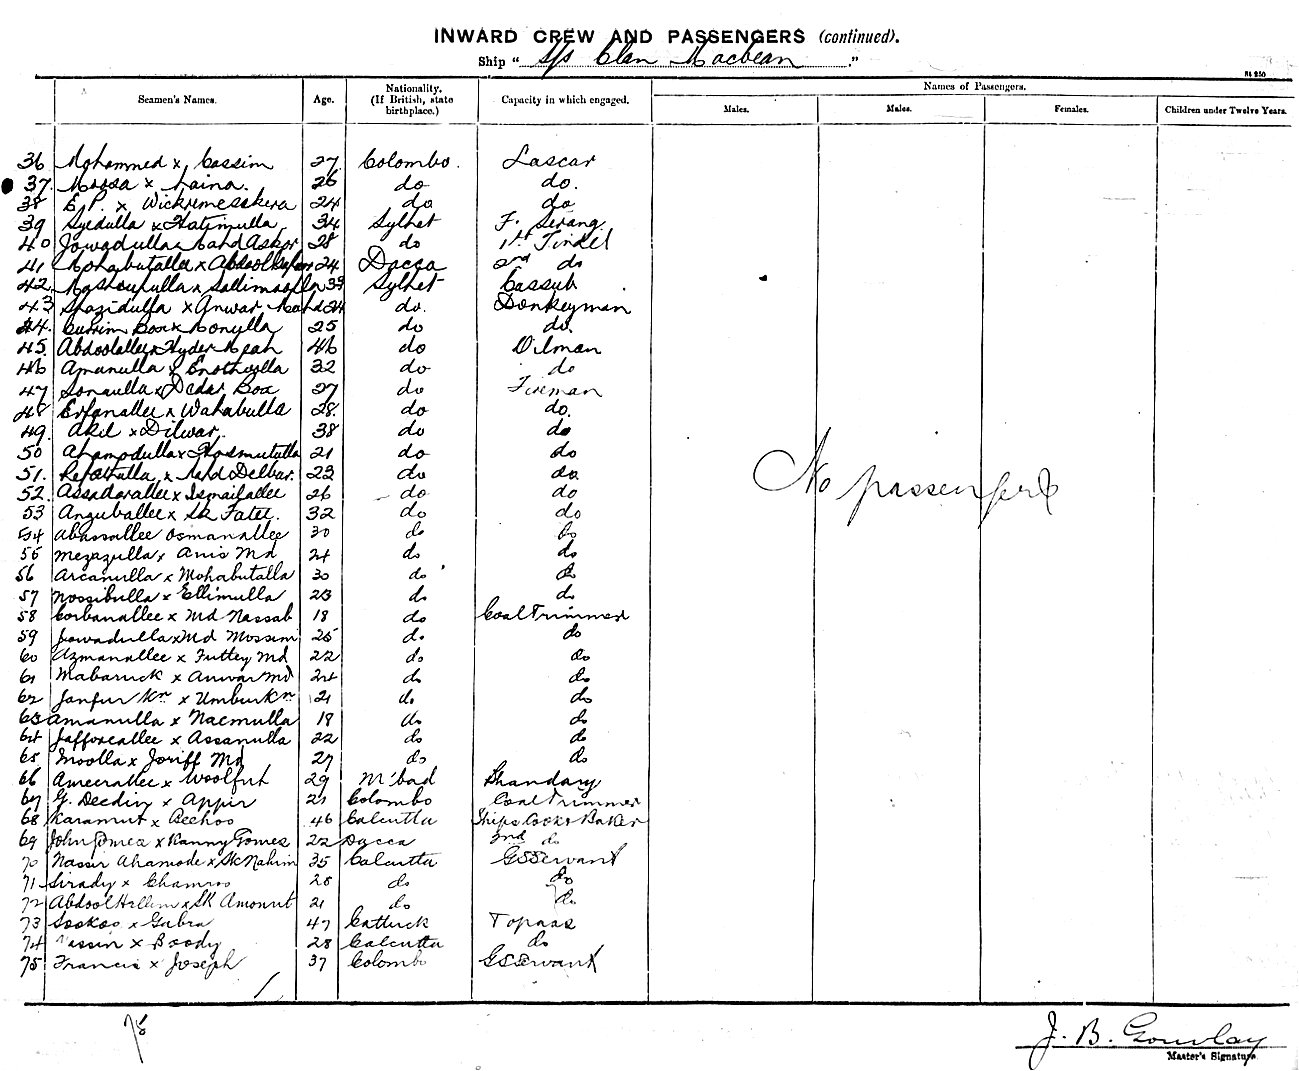 INWARD CREW AND PASSENGERS (continued).
Ship " S/S Clan Macbean "
Seamen's Names. Age. Nationality. (If British, state birthplace.) Capacity in which engaged. Names of Passengers.
Males. Males. Females. Children under Twelve Years.
36 Mohammed x Cassim 27 Colombo. Lascar
37. Moosa x Laina. 26 do do.
38 E. P. x Wickremesekera 24 do do
39 Syedulla x Hatimulla 34 Sylhet F. Serang
40 Jowadulla x Mahd Asker 28 do 1st Tindel
41 Mohabutallee x Abdool 24 Dacca 2nd do
42 x Sallimoolla 39 Sylhet Cassub
43 Shazidulla x Anwar Mahd 24 do. Donkeyman
44. Currim Box x Monylla 25 do do.
45. Abdoolallee x Hyder Meah 46 do Oilman
46 Amanulla x 32 do do
47 Sonaulla x Dedar Box 27 do Fireman
48 Erfanallee x Wahabulla 28. do do.
49. Akil x Dilwar. 38 do do
50 Ahamodulla x 21 do do
51. x Mahd Delbar. 23 do do.
52. Assadarallee x Ismailallee 26 do do
53 Anguballee x Sk Fatee. 32 do do
54 Abasallee Osmanallee 30 do do
55 Mezazulla x Anis Md 24 do do
56 Arcanulla x Mohabutalla 30 do do
57 Nossibulla x Ellimulla 23 do do
58 Corbanallee x Md Nassab 18 do Coal Trimmer
59 Jowadulla x Md Mossim 25 do do
60 Azmanallee x Futtey Md 22 do do
61 Mabaruck x Anwar Md 24 do do
62 Janfur Kn x Umbur Kn 21 do do
63 Amanulla x Nacmulla 18 do do
64 Jafforeallee x Assanulla 22 do do
65 Moolla x Joriff Md 27 do do
66 Ameerallee x Woolfut 29 M'bad Bhandary
67 G. Deedin x Appir 21 Colombo Coal Trimmer
68 Karamut x Aechoo 46 Calcutta Ships Cooks Baker
69 John Gomes x Ranny Gomes 22 Dacca 2nd do
70 Nassir Ahamode x Sk Nahim 35 Calcutta GSServant
71 Sirady x Chamroo 28 do do
72 Abdool x Sk Amonut 21 do do
73 Sookoo x Gabra 47 Cattuck Topass
74 x Boody 28 Calcutta do
75 Francis x Joseph 37 Colombo GSServant
No passengers
75
J. B. Gourlay
Master's Signature